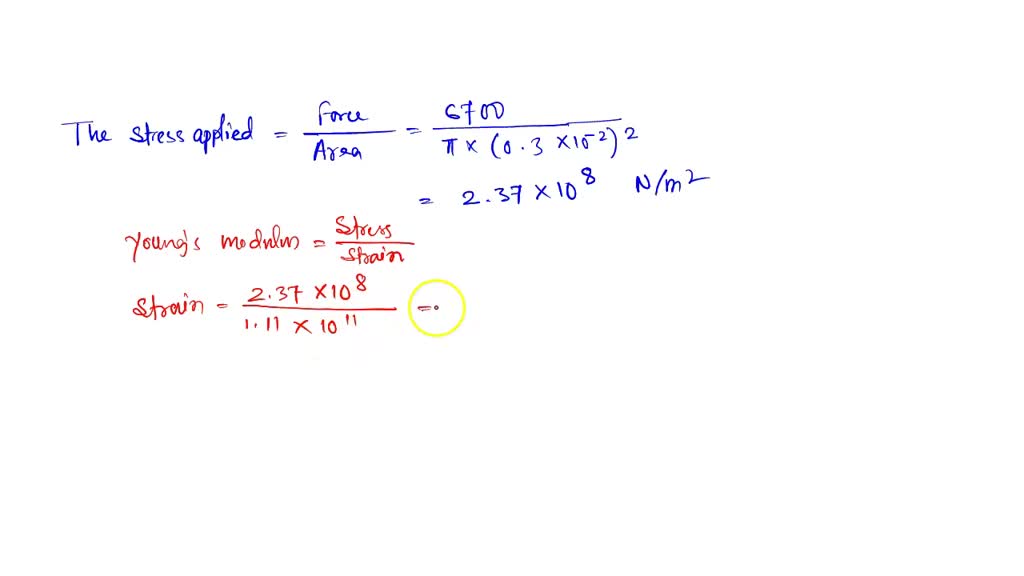 The stress applied = Force / Area = 6700 / π × (0.3 × 10⁻²)²
= 2.37 × 10⁸ N/m²
Young's modulus = Stress / Strain
Strain = 2.37 × 10⁸ / 1.11 × 10¹¹ =